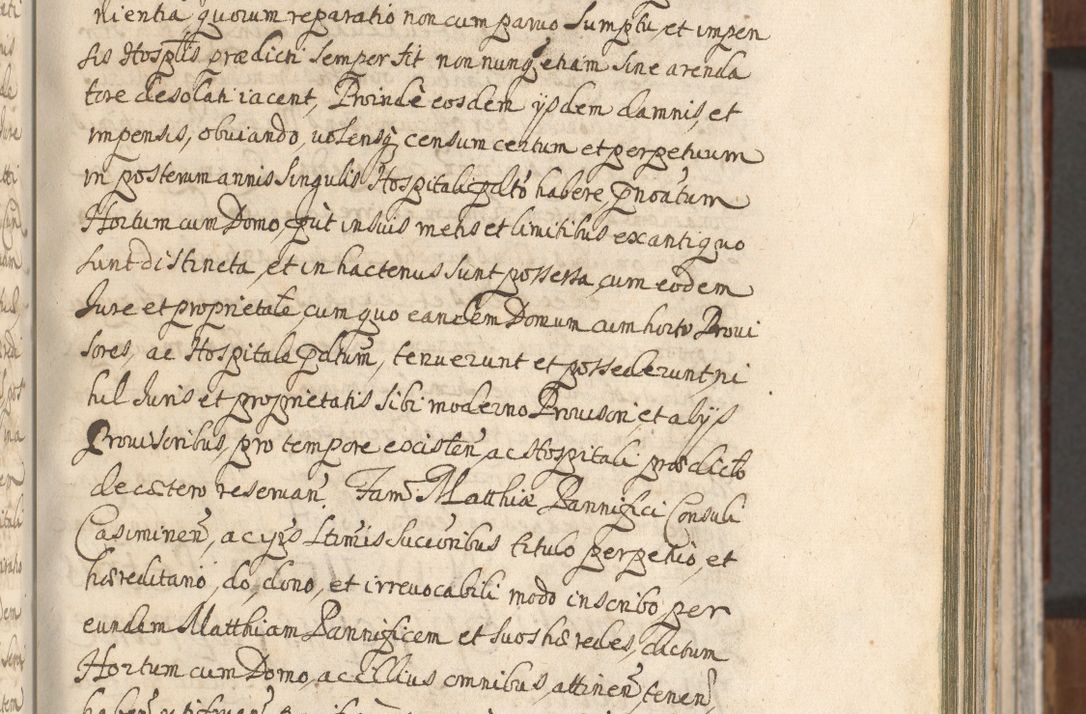 nientia, quorum reparatio non cum parvo sumptu, et impen
sis Hosplis prædicti semper fit non nunq etiam sine arenda
tore desolati iacent, Proindè eosdem ijsdem damnis, et
impensis, obuiando, uolensq censum certum et perpetuum
in posterum annis singulis Hospitali pdto habere, pnoatum
Hortum cum Domo, put in suis metis et limitibus ex antiquo
sunt distincta, et in hactenus sunt possessa, cum eodem
Jure et proprietate, cum quo eandem Domum cum horto Proui
sores, ac Hospitale pdtum, tenuerunt et possederunt, ni
hil Juris et proprietatis sibi moderno Prouisori, et alijs
Prouisoribus, pro tempore existen, ac Hospitali prædicto
de cætero reseruan. Fam Matthiæ Pannifici Consuli
Casiminen, ac ips Ltimis Succoribus titulo perpetuo, et
hæreditario, do, dono, et irrevocabili modo inscribo per
eundem Matthiam Pannificem et suos hæredes, dictum
Hortum cum Domo, ac illius omnibus, attinen, tenen,
haben